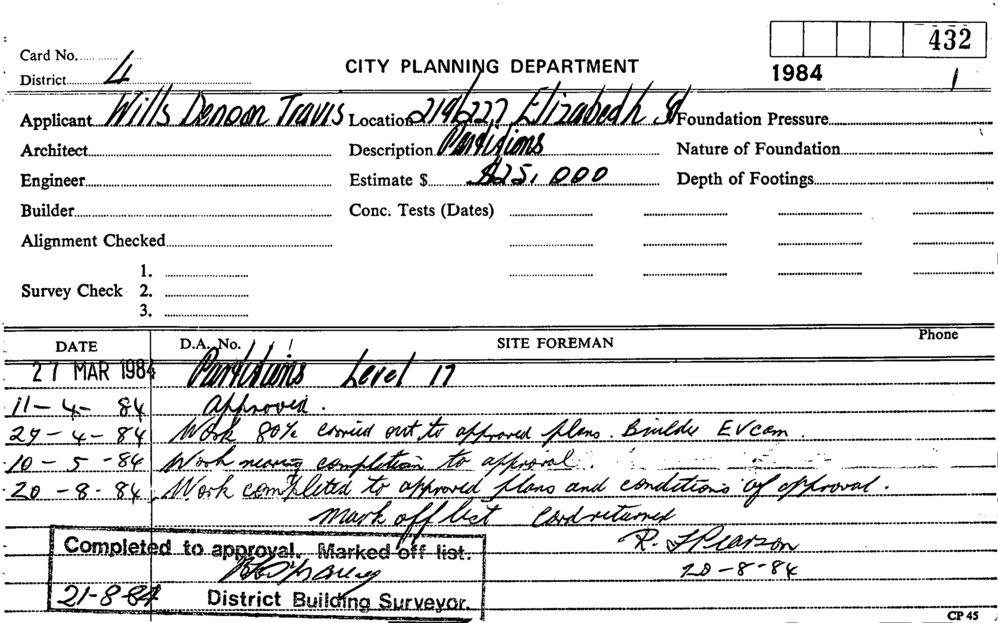 432
Card No.
CITY PLANNING DEPARTMENT
1984 1
District 4
Applicant Wills Denoon Travis Location 219/227 Elizabeth St Foundation Pressure
Architect Description Partitions Nature of Foundation
Engineer Estimate $ $25,000 Depth of Footings
Builder Conc. Tests (Dates)
Alignment Checked
1.
Survey Check 2.
3.
DATE D.A. No. SITE FOREMAN Phone
27 MAR 1984 Partitions Level 17
11-4-84 Approved.
29-4-84 Work 80% carried out to approved plans. Builder EVcom.
10-5-84 Work nearing completion to approval.
20-8-84 Work completed to approved plans and conditions of approval.
Mark off list Card returned
R. Pearson
20-8-84
Completed to approval. Marked off list.
21-8-84 District Building Surveyor.
CP 45